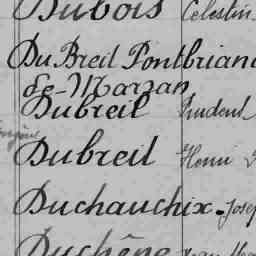 Dubois Celestin
Du Breil Pontbriand
de-Marzan
Dubreil Prudent
Dubreil Henri
Duchauchix. Josep
Duchêne